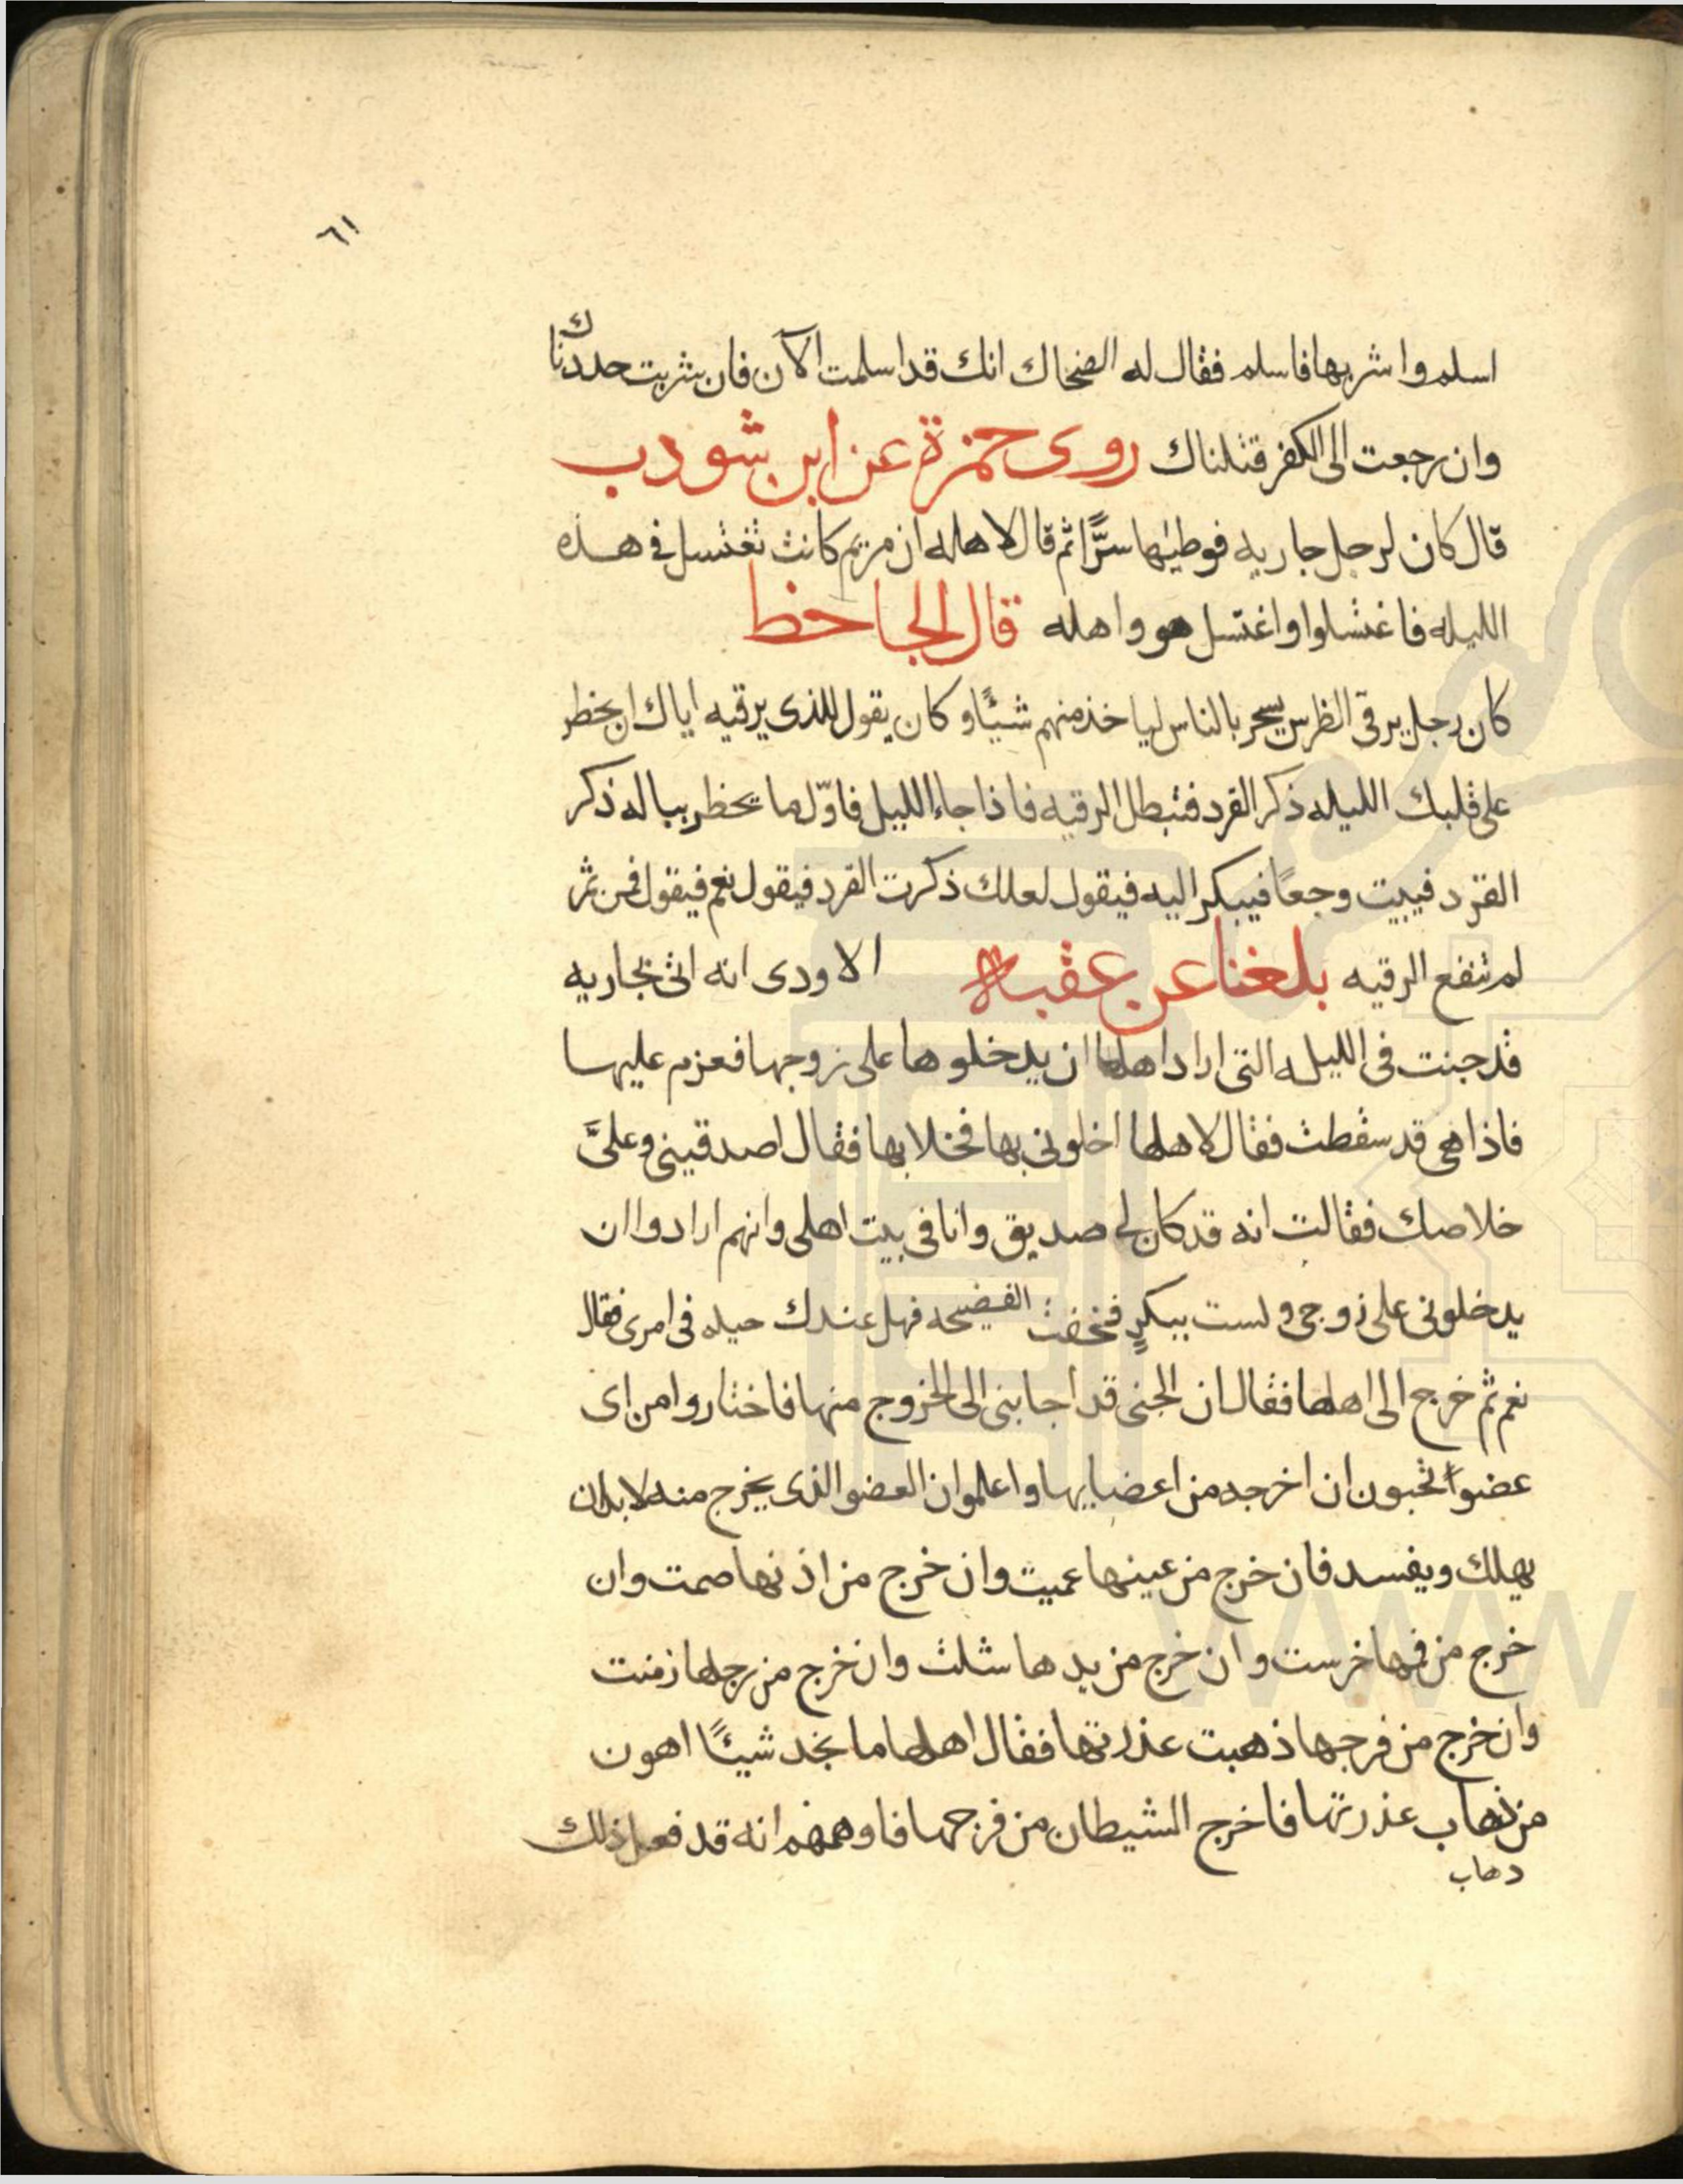 ٦١
اسلم واشربها فاسلم فقال له الضحاك انك قد اسلمت الآن فان شربت حددناك
وان رجعت الى الكفر قتلناك روى حمزة عن ابن شودب
قال كان لرجل جاريه فوطئها سرًّا ثم قال لاهله ان مريم كانت تغتسل فى هذه
الليله فاغتسلوا واغتسل هو واهله قال الجاحظ
كان رجل يرقى الظرس يسحر بالناس لياخذ منهم شيئًا وكان يقول للذى يرقيه اياك ان يخطر
على قلبك الليله ذكر القرد فتبطل الرقيه فاذا جاء الليل فاوّل ما يخطر بباله ذكر
القرد فيبيت وجعًا فيبكر اليه فيقول لعلك ذكرت القرد فيقول نعم فيقول فمن ثم
لم تنفع الرقيه بلغنا عن عقبة الاودى انه اتى بجاريه
قد جنت فى الليله التى اراد اهلها ان يدخلوها على زوجها فعزم عليها
فاذا هى قد سقطت فقال لاهلها اخلونى بها فخلا بها فقال اصدقينى وعلىَّ
خلاصك فقالت انه قد كان لى صديق وانا فى بيت اهلى وانهم ارادوا ان
يدخلونى على زوجى ولست ببكرٍ فخفت الفضيحه فهل عندك حيله فى امرى فقال
نعم ثم خرج الى اهلها فقال ان الجنى قد اجابنى الى الخروج منها فاختاروا من اى
عضواً تحبون ان اخرجه من اعضايها واعلموا ان العضو الذى يخرج منه لابد ان
يهلك ويفسد فان خرج من عينها عميت وان خرج من اذنها صمت وان
خرج من فمها خرست وان خرج من يدها شلت وان خرج من رجلها زمنت
وان خرج من فرجها ذهبت عذرتها فقال اهلها ما نجد شيئًا اهون
من ذهاب عذرتها فاخرج الشيطان من فرجها فاوهمهم انه قد فعل ذلك
دهاب